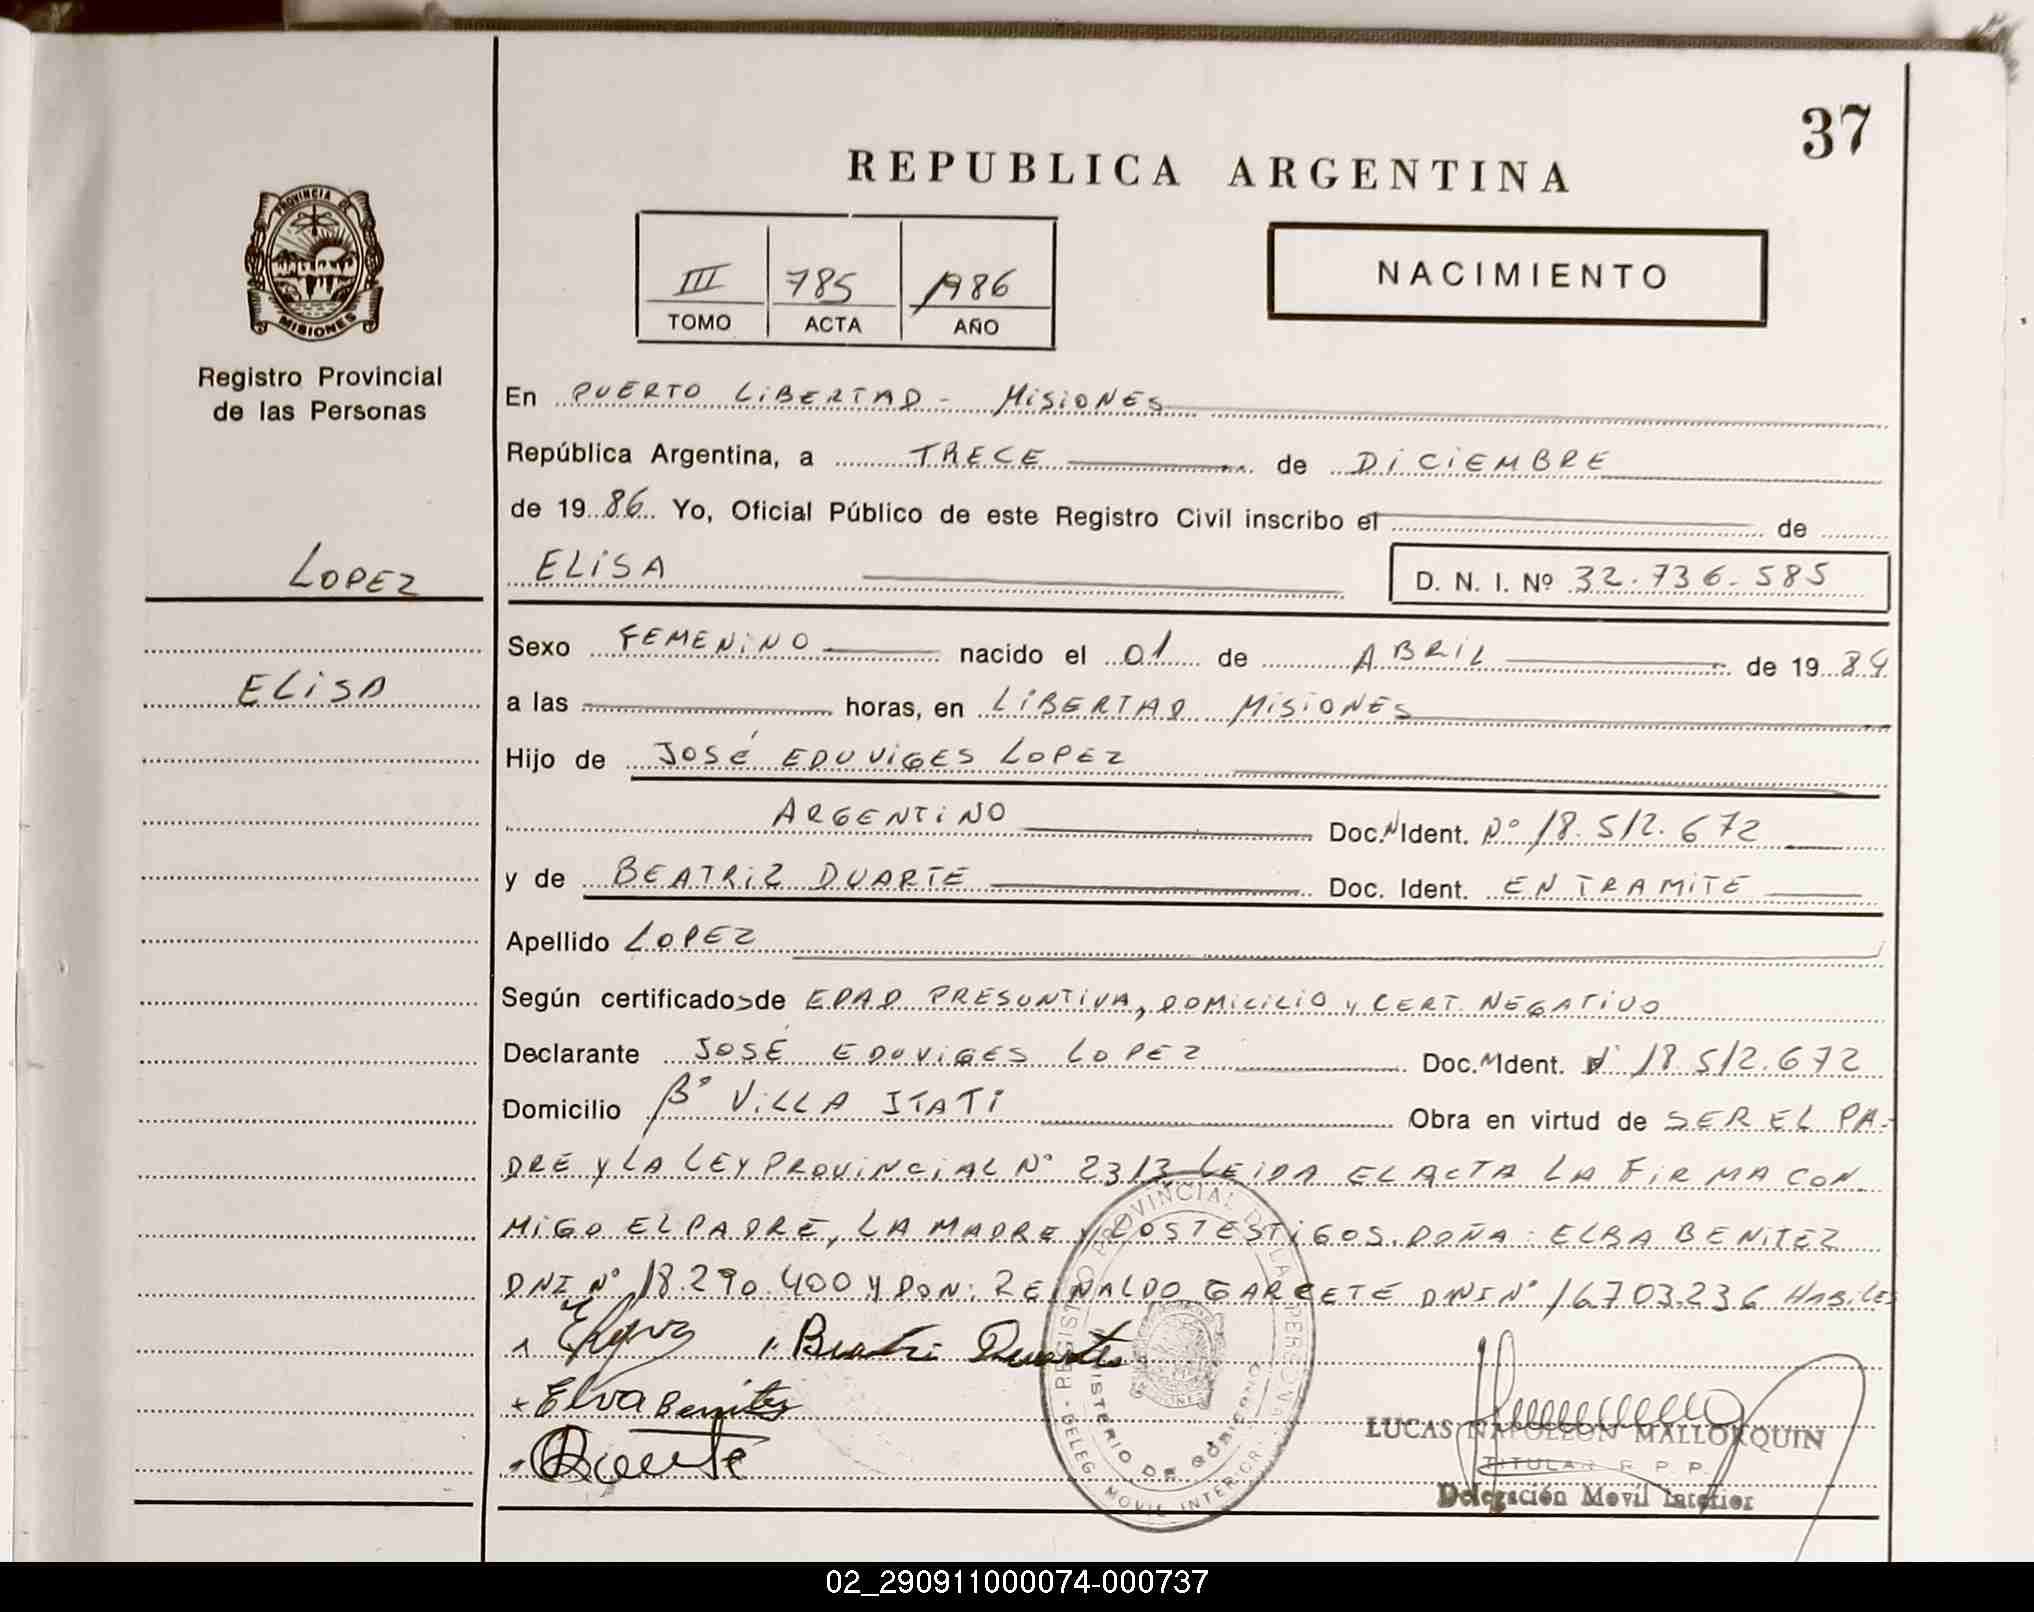 37
REPUBLICA ARGENTINA
PROVINCIA DE
MISIONES
III 785 1986
TOMO ACTA AÑO
NACIMIENTO
Registro Provincial
de las Personas
En PUERTO LIBERTAD - MISIONES
República Argentina, a TRECE de DICIEMBRE
de 1986 Yo, Oficial Público de este Registro Civil inscribo el de
LOPEZ
ELISA D. N. I. Nº 32.736.585
Sexo FEMENINO nacido el 01 de ABRIL de 1984
ELISA
a las horas, en LIBERTAD MISIONES
Hijo de JOSÉ EDUVIGES LOPEZ
ARGENTINO Doc. N Ident. Nº 18.512.672
y de BEATRIZ DUARTE Doc. Ident. EN TRAMITE
Apellido LOPEZ
Según certificados de EDAD PRESUNTIVA, DOMICILIO Y CERT. NEGATIVO
Declarante JOSÉ EDUVIGES LOPEZ Doc. N Ident. Nº 18.512.672
Domicilio Bº VILLA ITATI Obra en virtud de SER EL PA-
DRE Y LA LEY PROVINCIAL Nº 2313 LEIDA EL ACTA LA FIRMA CON
MIGO EL PADRE, LA MADRE Y LOS TESTIGOS. DOÑA: ELBA BENITEZ
DNI Nº 18.290.400 Y DON: REINALDO GARCETE DNI Nº 16.703.236 HABILES
Beatriz Duarte
Elva Benitez
REGISTRO PROVINCIAL DE LAS PERSONAS
MINISTERIO DE GOBIERNO
DELEG. MOVIL INTERIOR
LUCAS NAPOLEON MALLORQUIN
TITULAR R. P. P.
Delegación Movil Interior
02_290911000074-000737